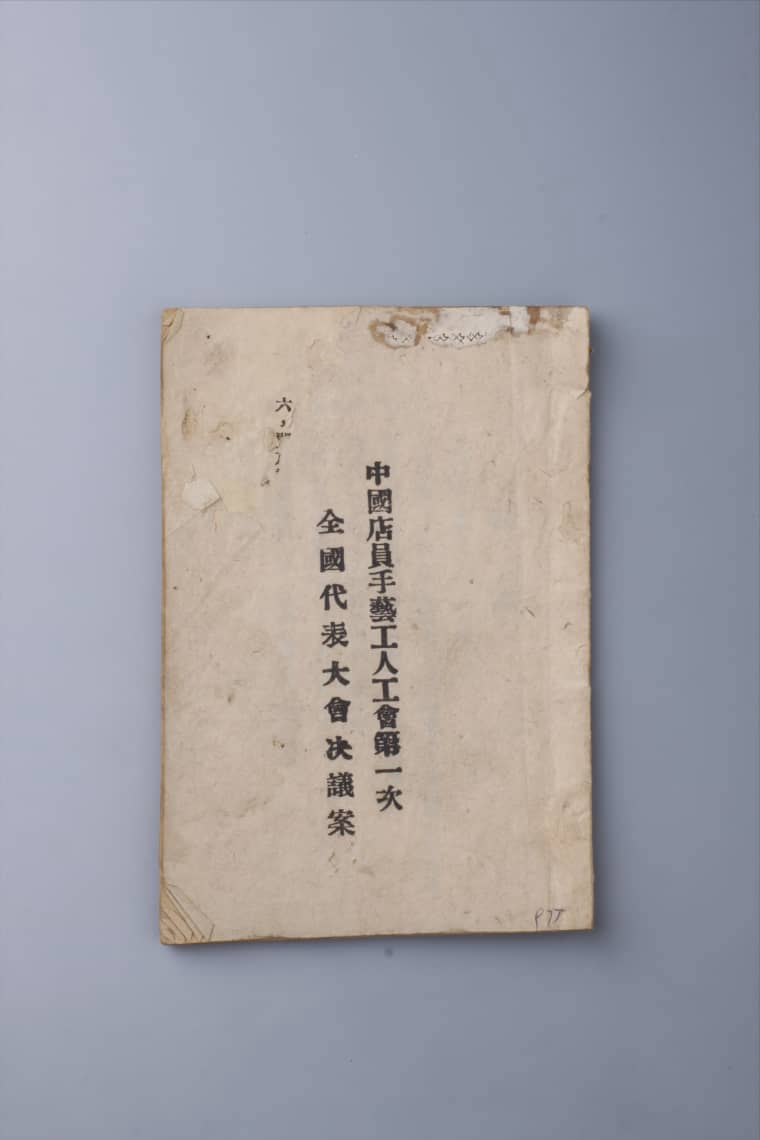 中國店員手藝工人工會第一次
全國代表大會决議案
六，